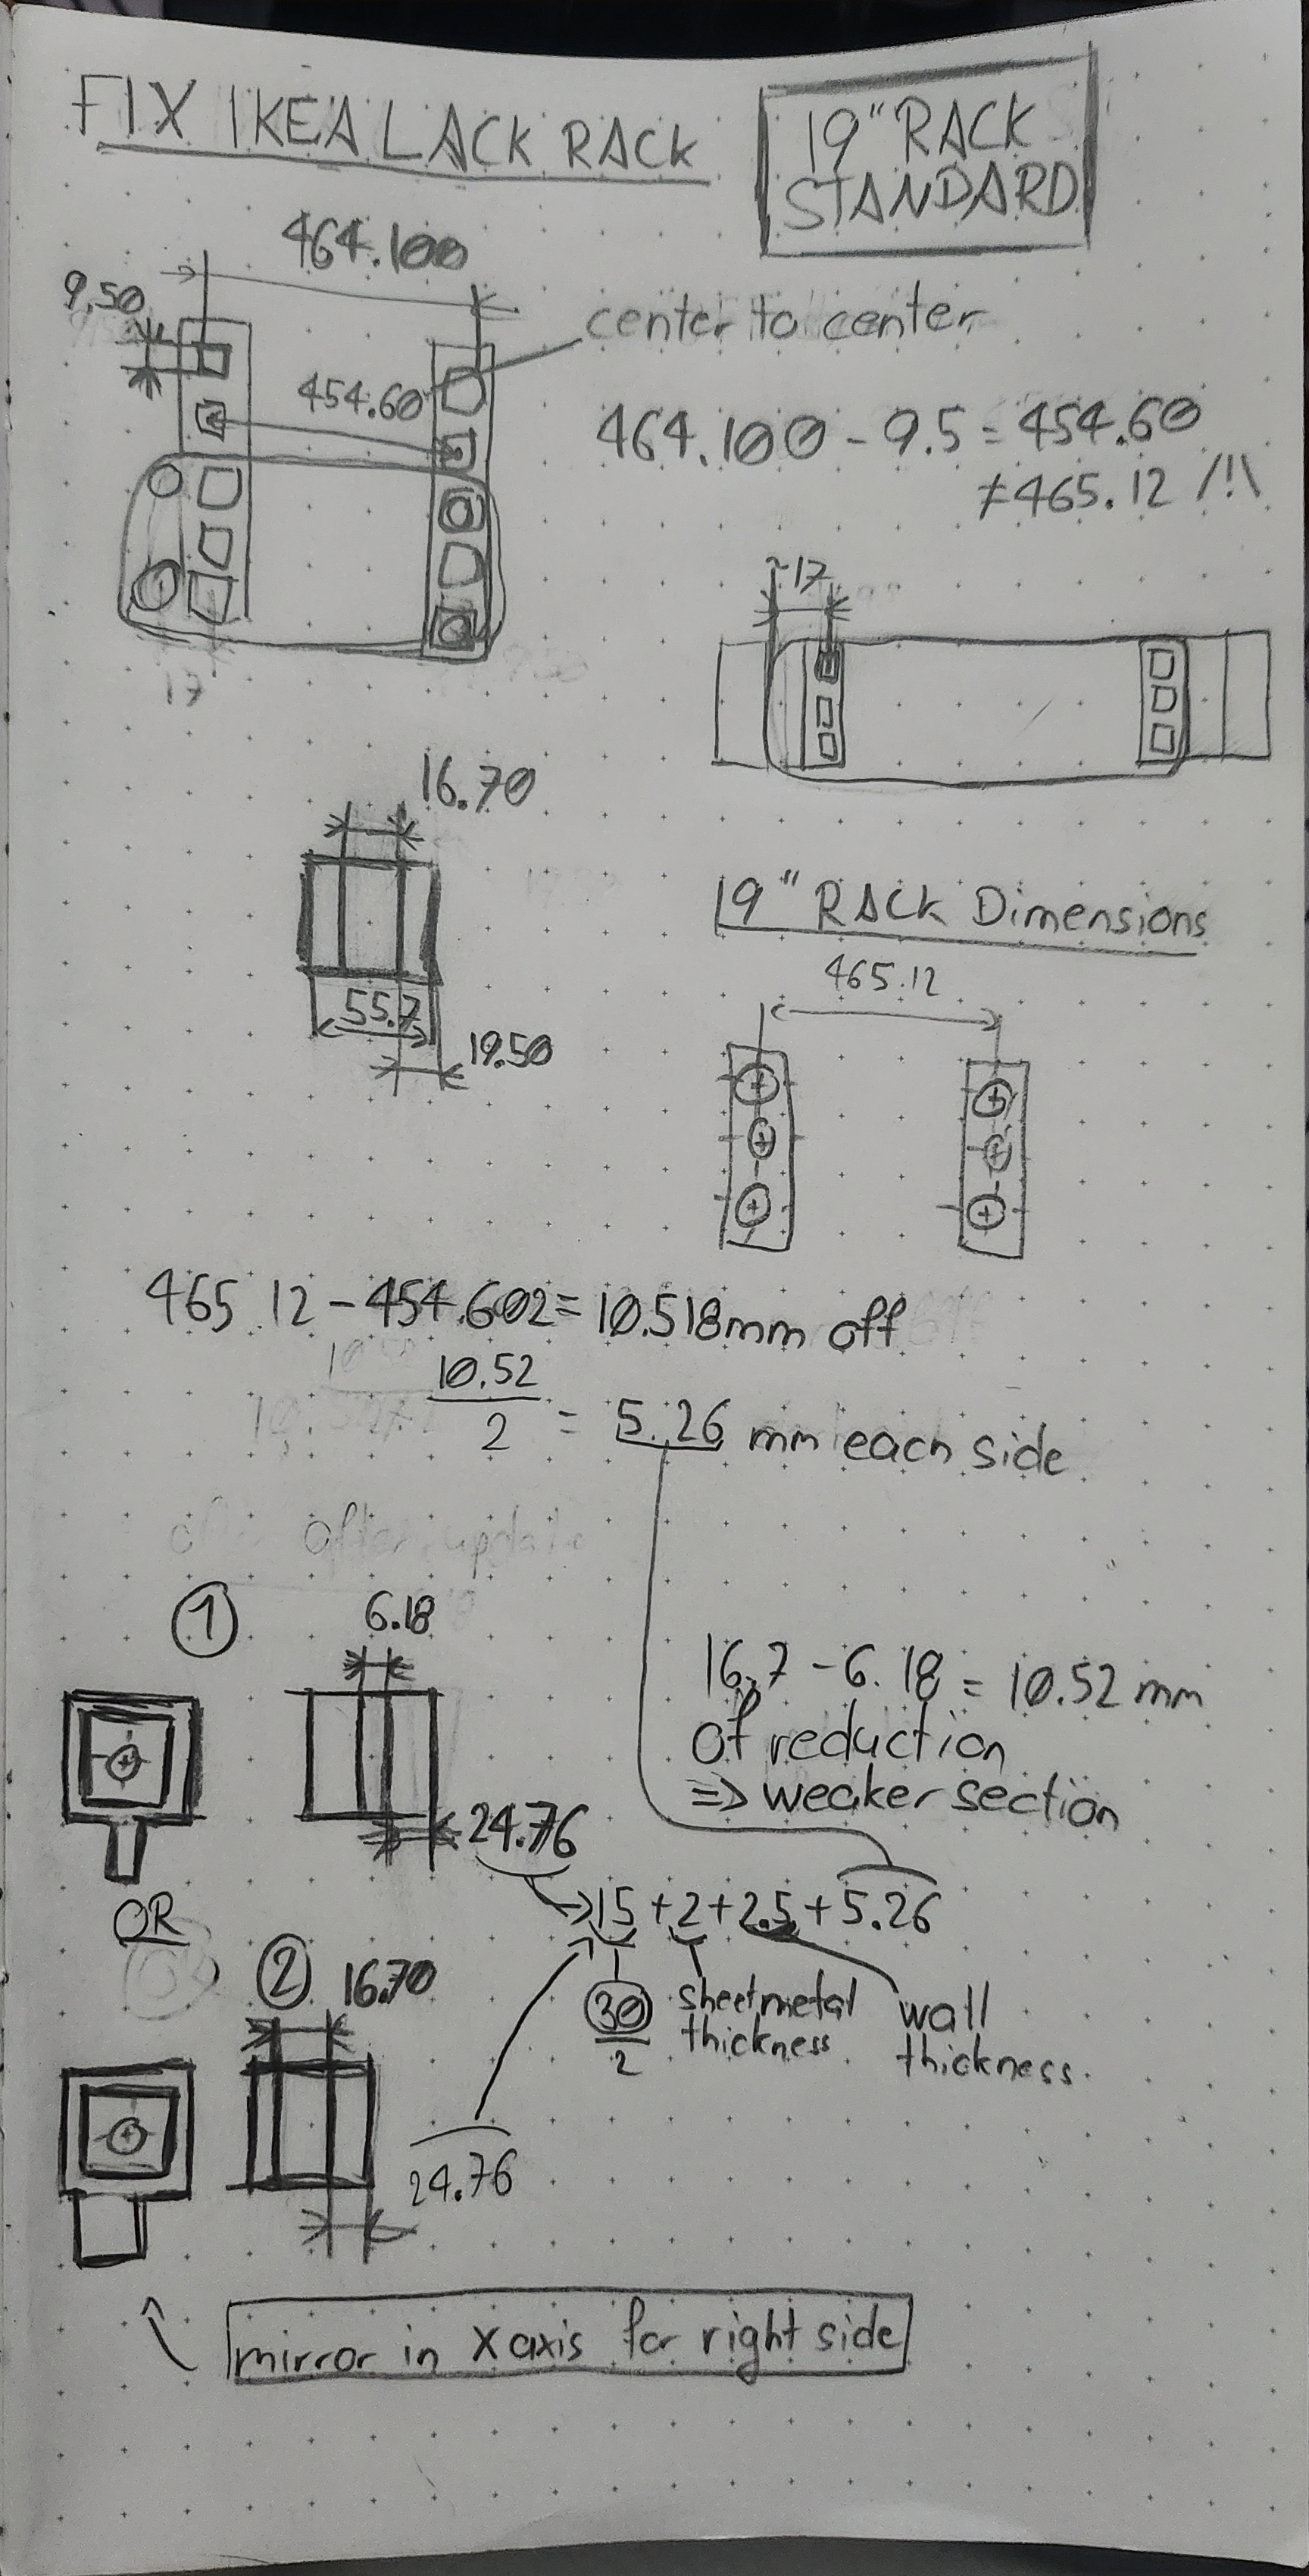 FIX IKEA LACK RACK
19" RACK
STANDARD
464.100
9.50
center to center
454.60
464.100 - 9.5 = 454.60
≠465.12 /!\
~17
17
16.70
19" RACK Dimensions
465.12
55.7
19.50
465.12 - 454.602 = 10.518mm off
10.52
2
= 5.26 mm each side
after update
1
6.18
16.7 - 6.18 = 10.52 mm
of reduction
=> weaker section
24.76
15 + 2 + 2.5 + 5.26
OR
2
16.70
30
2
sheetmetal
thickness
wall
thickness.
24.76
mirror in x axis for right side